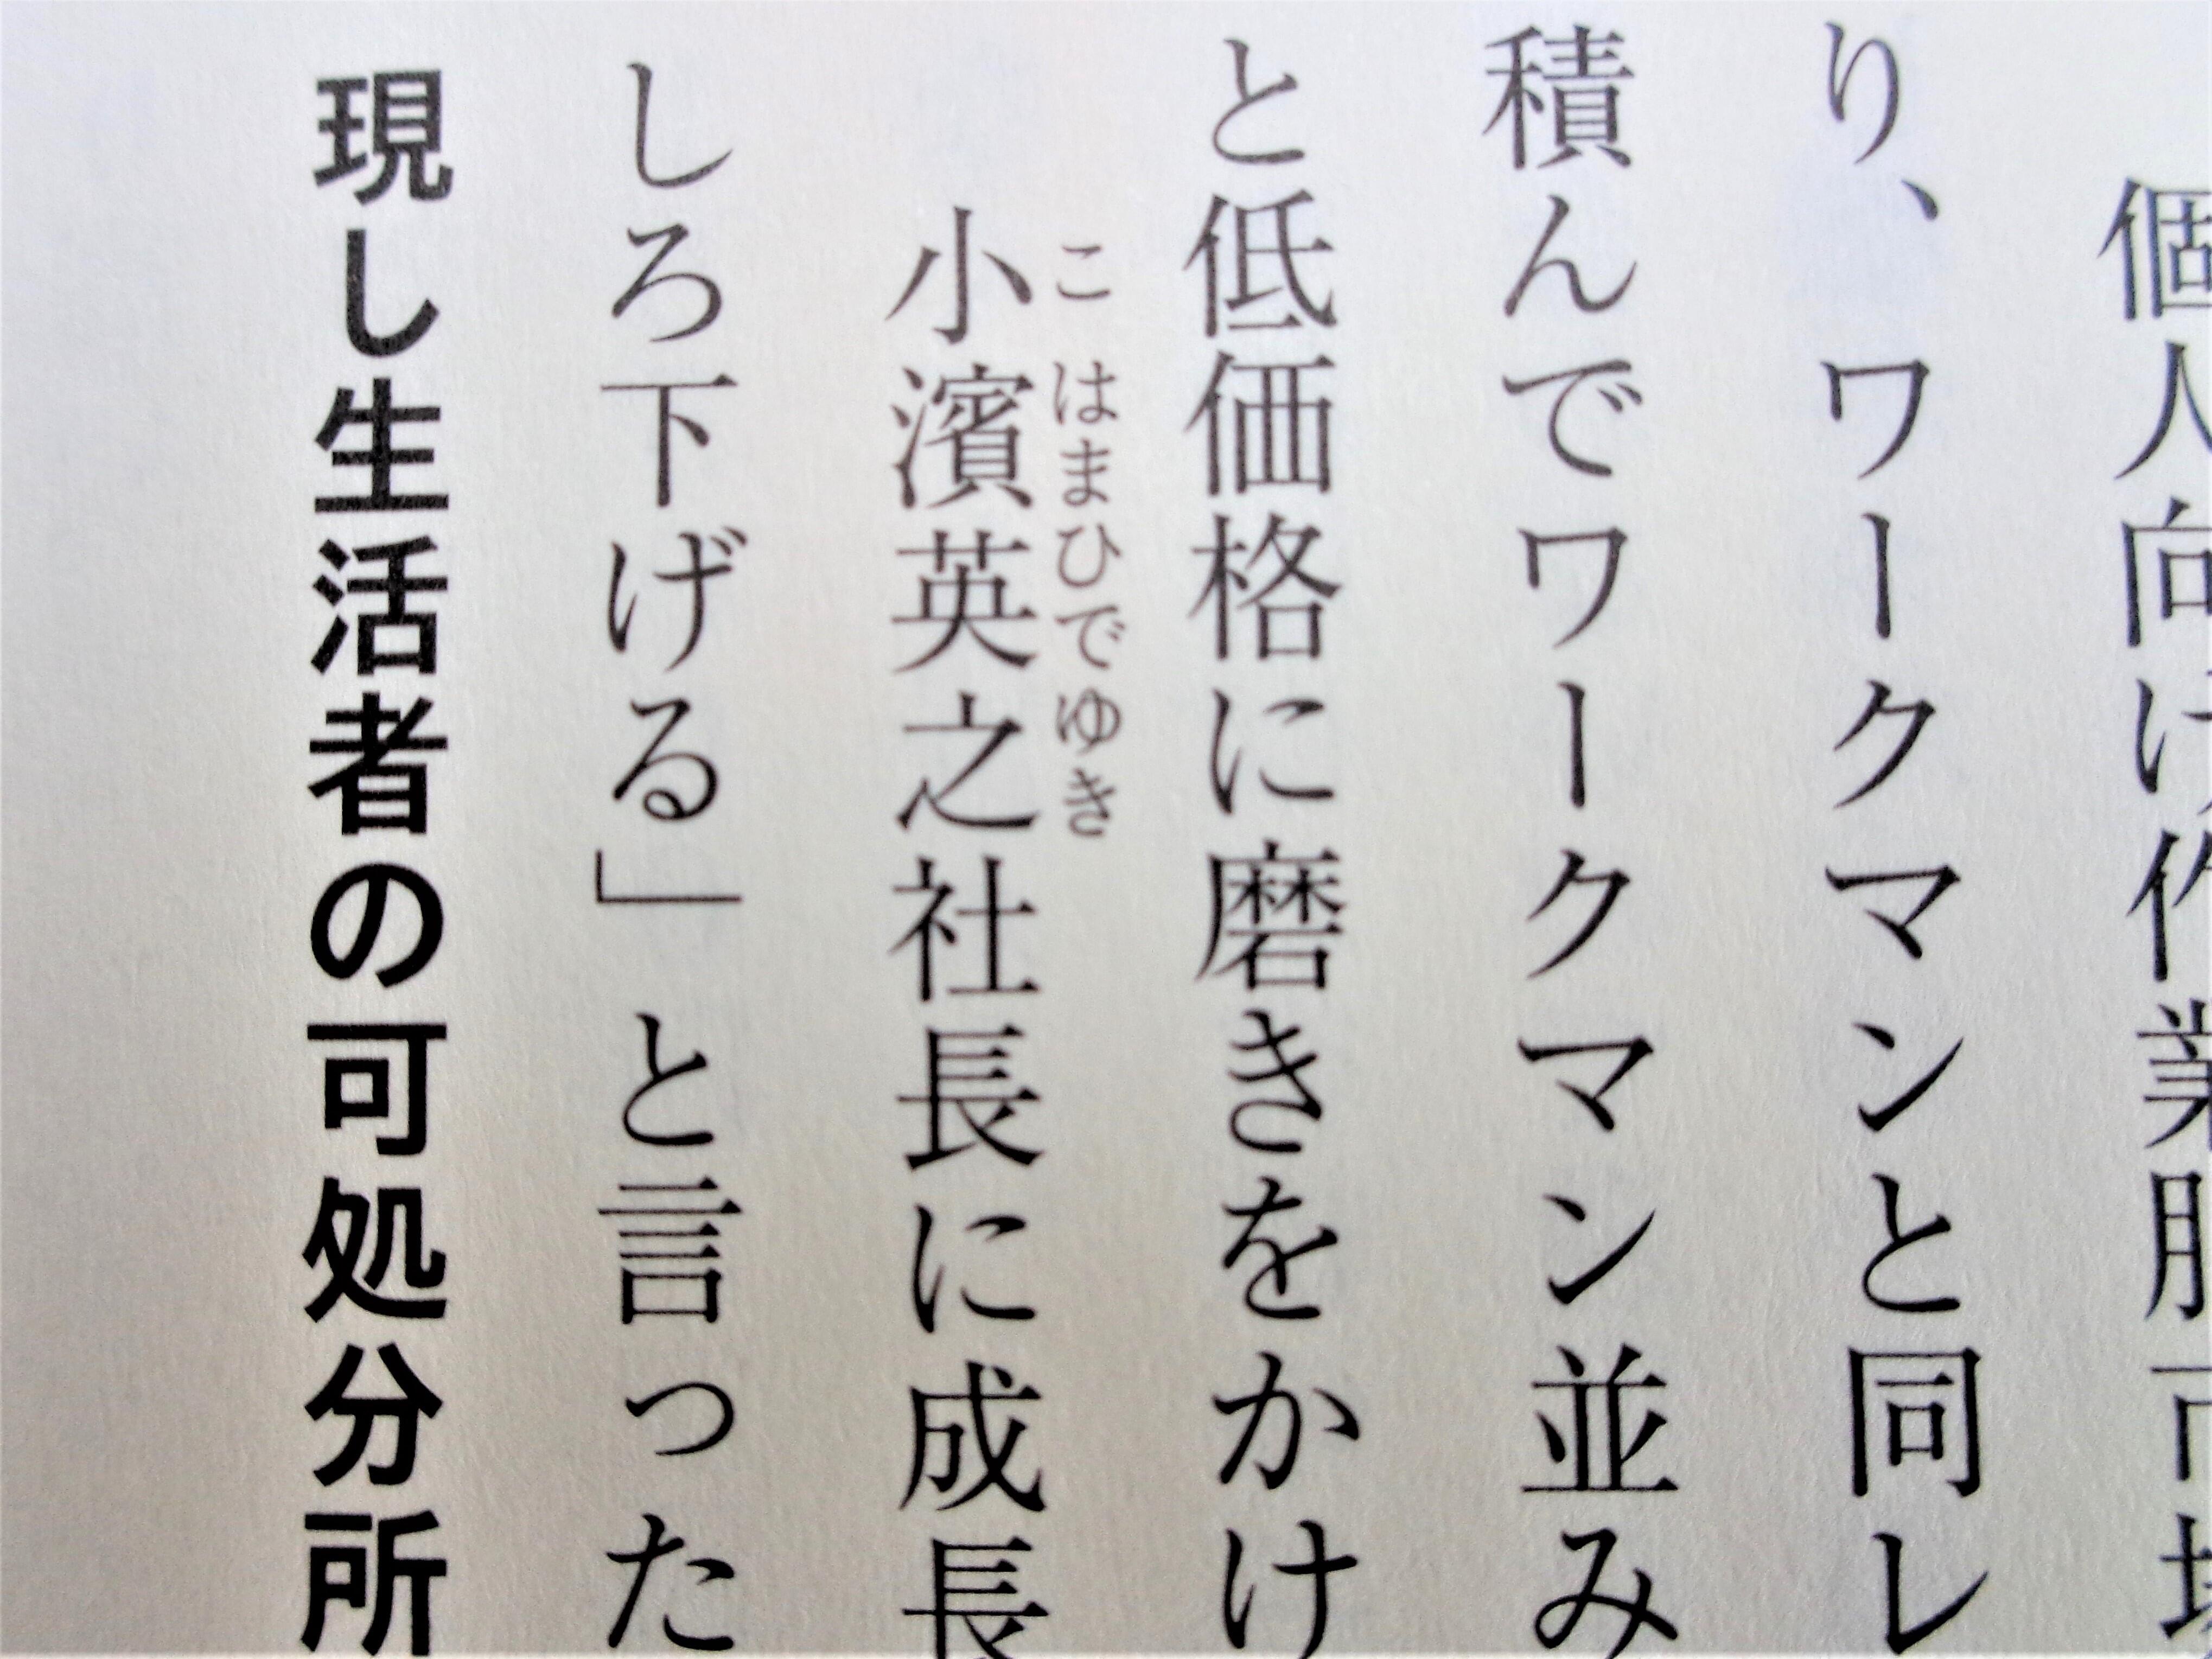 個人向け作業服市場
り、ワークマンと同レ
積んでワークマン並み
と低価格に磨きをかけ
こはまひでゆき
小濱英之社長に成長
しろ下げる」と言った
現し生活者の可処分所